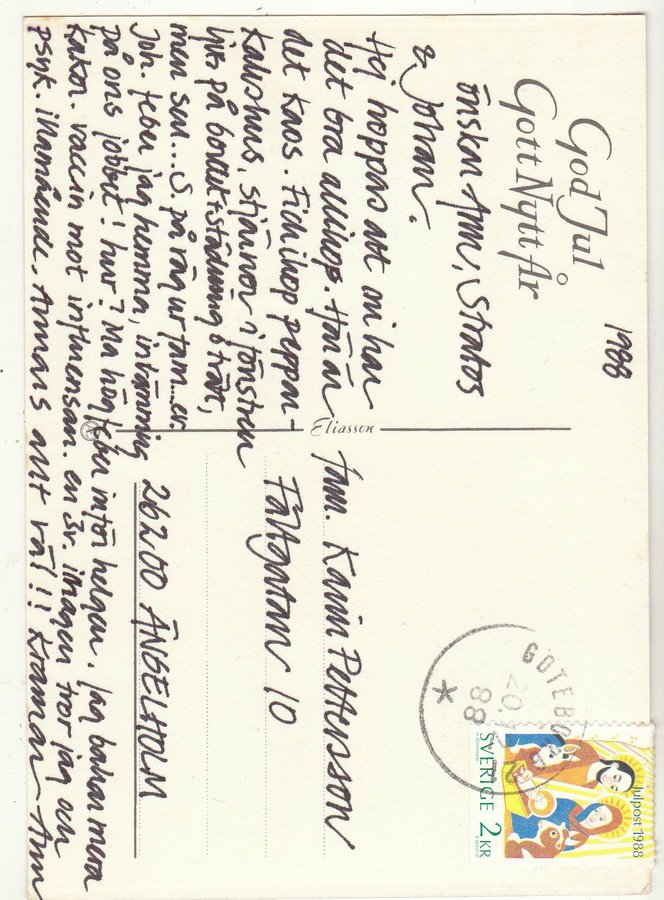 1988
God Jul
Gott Nytt År
önskar Ann, Stratos
& Johan.
Hej hoppas att ni har
det bra allihop. Här är
det kaos. Fick ihop peppar-
kakshus, stjärnor i fönstren
ljus på bordet + städning
men sen... S på väg ur
Joh. feber jag hemma,
på ons jobbet! hur? Ma hög feber inför helgen. Jag bakar mera
kakor. vaccin mot influensan. en tror jag och
psyk. illamående. Annars allt väl!! Kramar Ann
Eliasson
Fam. Karin Pettersson
Fältgatan 10
26200 ÄNGELHOLM
GÖTEBORG
20.12
88
Julpost 1988
SVERIGE 2 KR